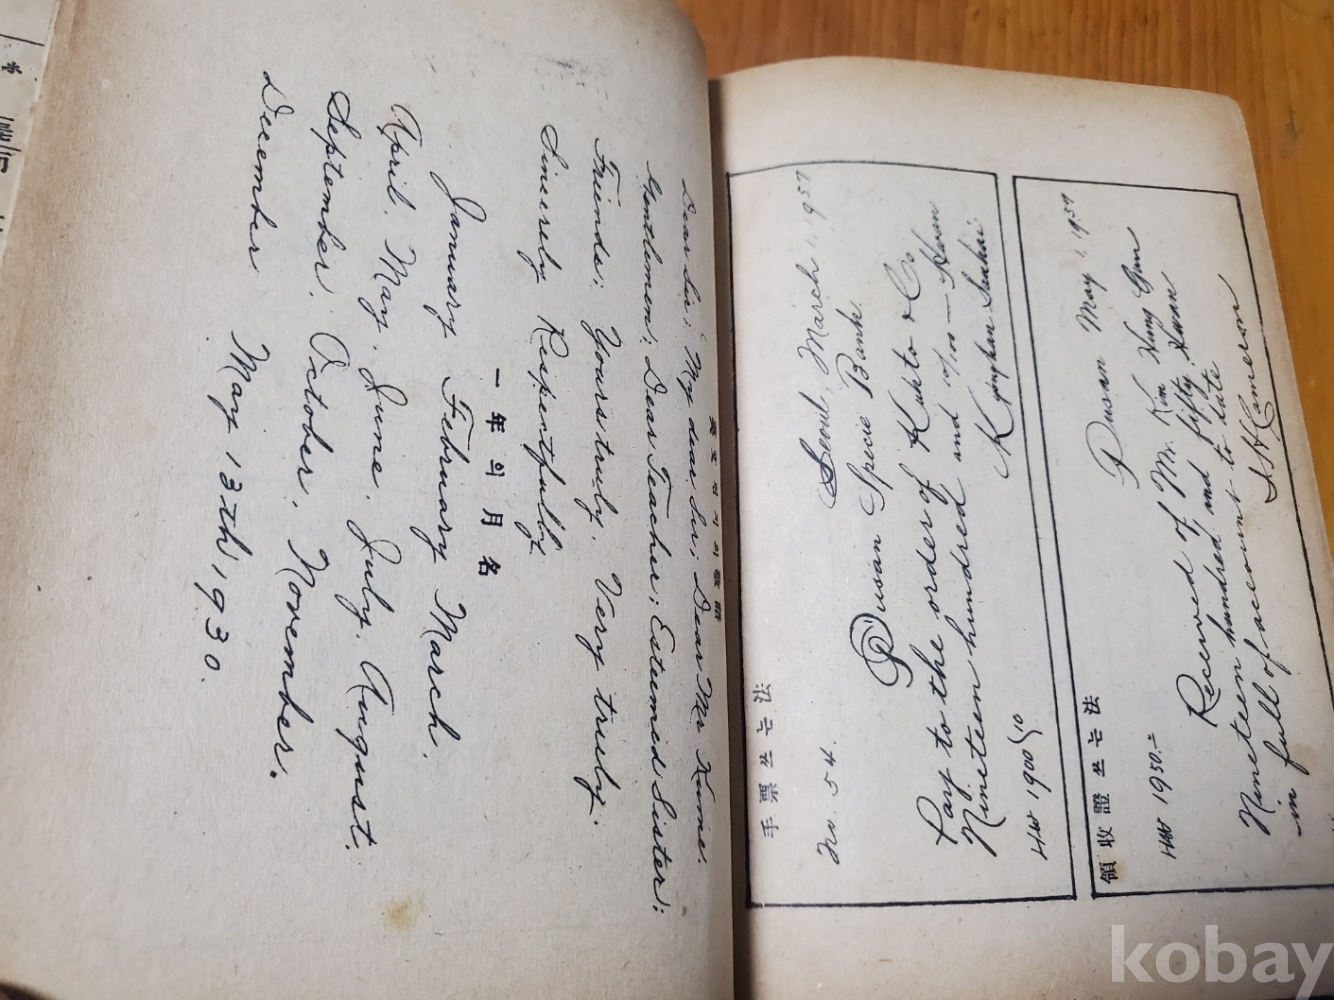 英文편지의敬語
Dear Sir; My dear Sir; Dear Mr Kume.
Gentlemen; Dear Teacher; Esteemed Sister;
Friends; Yours truly. Very truly.
Sincerely Respectfully
一年의月名
January February March.
April. May. June. July. August.
September. October. November.
December May 13th, 1930.
手票쓰는法
No. 54. Seoul, March 1, 1957
Pusan Specie Bank.
Pay to the order of Kuhto & Co
Nineteen hundred and 10/100 — Hwan
HW 1900 10
領收證쓰는法
Pusan May 1, 1957
HW 1950.=
Received of Mr. Kim Yung Gun
Nineteen hundred and fifty Hwan
in full of account to date
J. H. Cameron
kobay